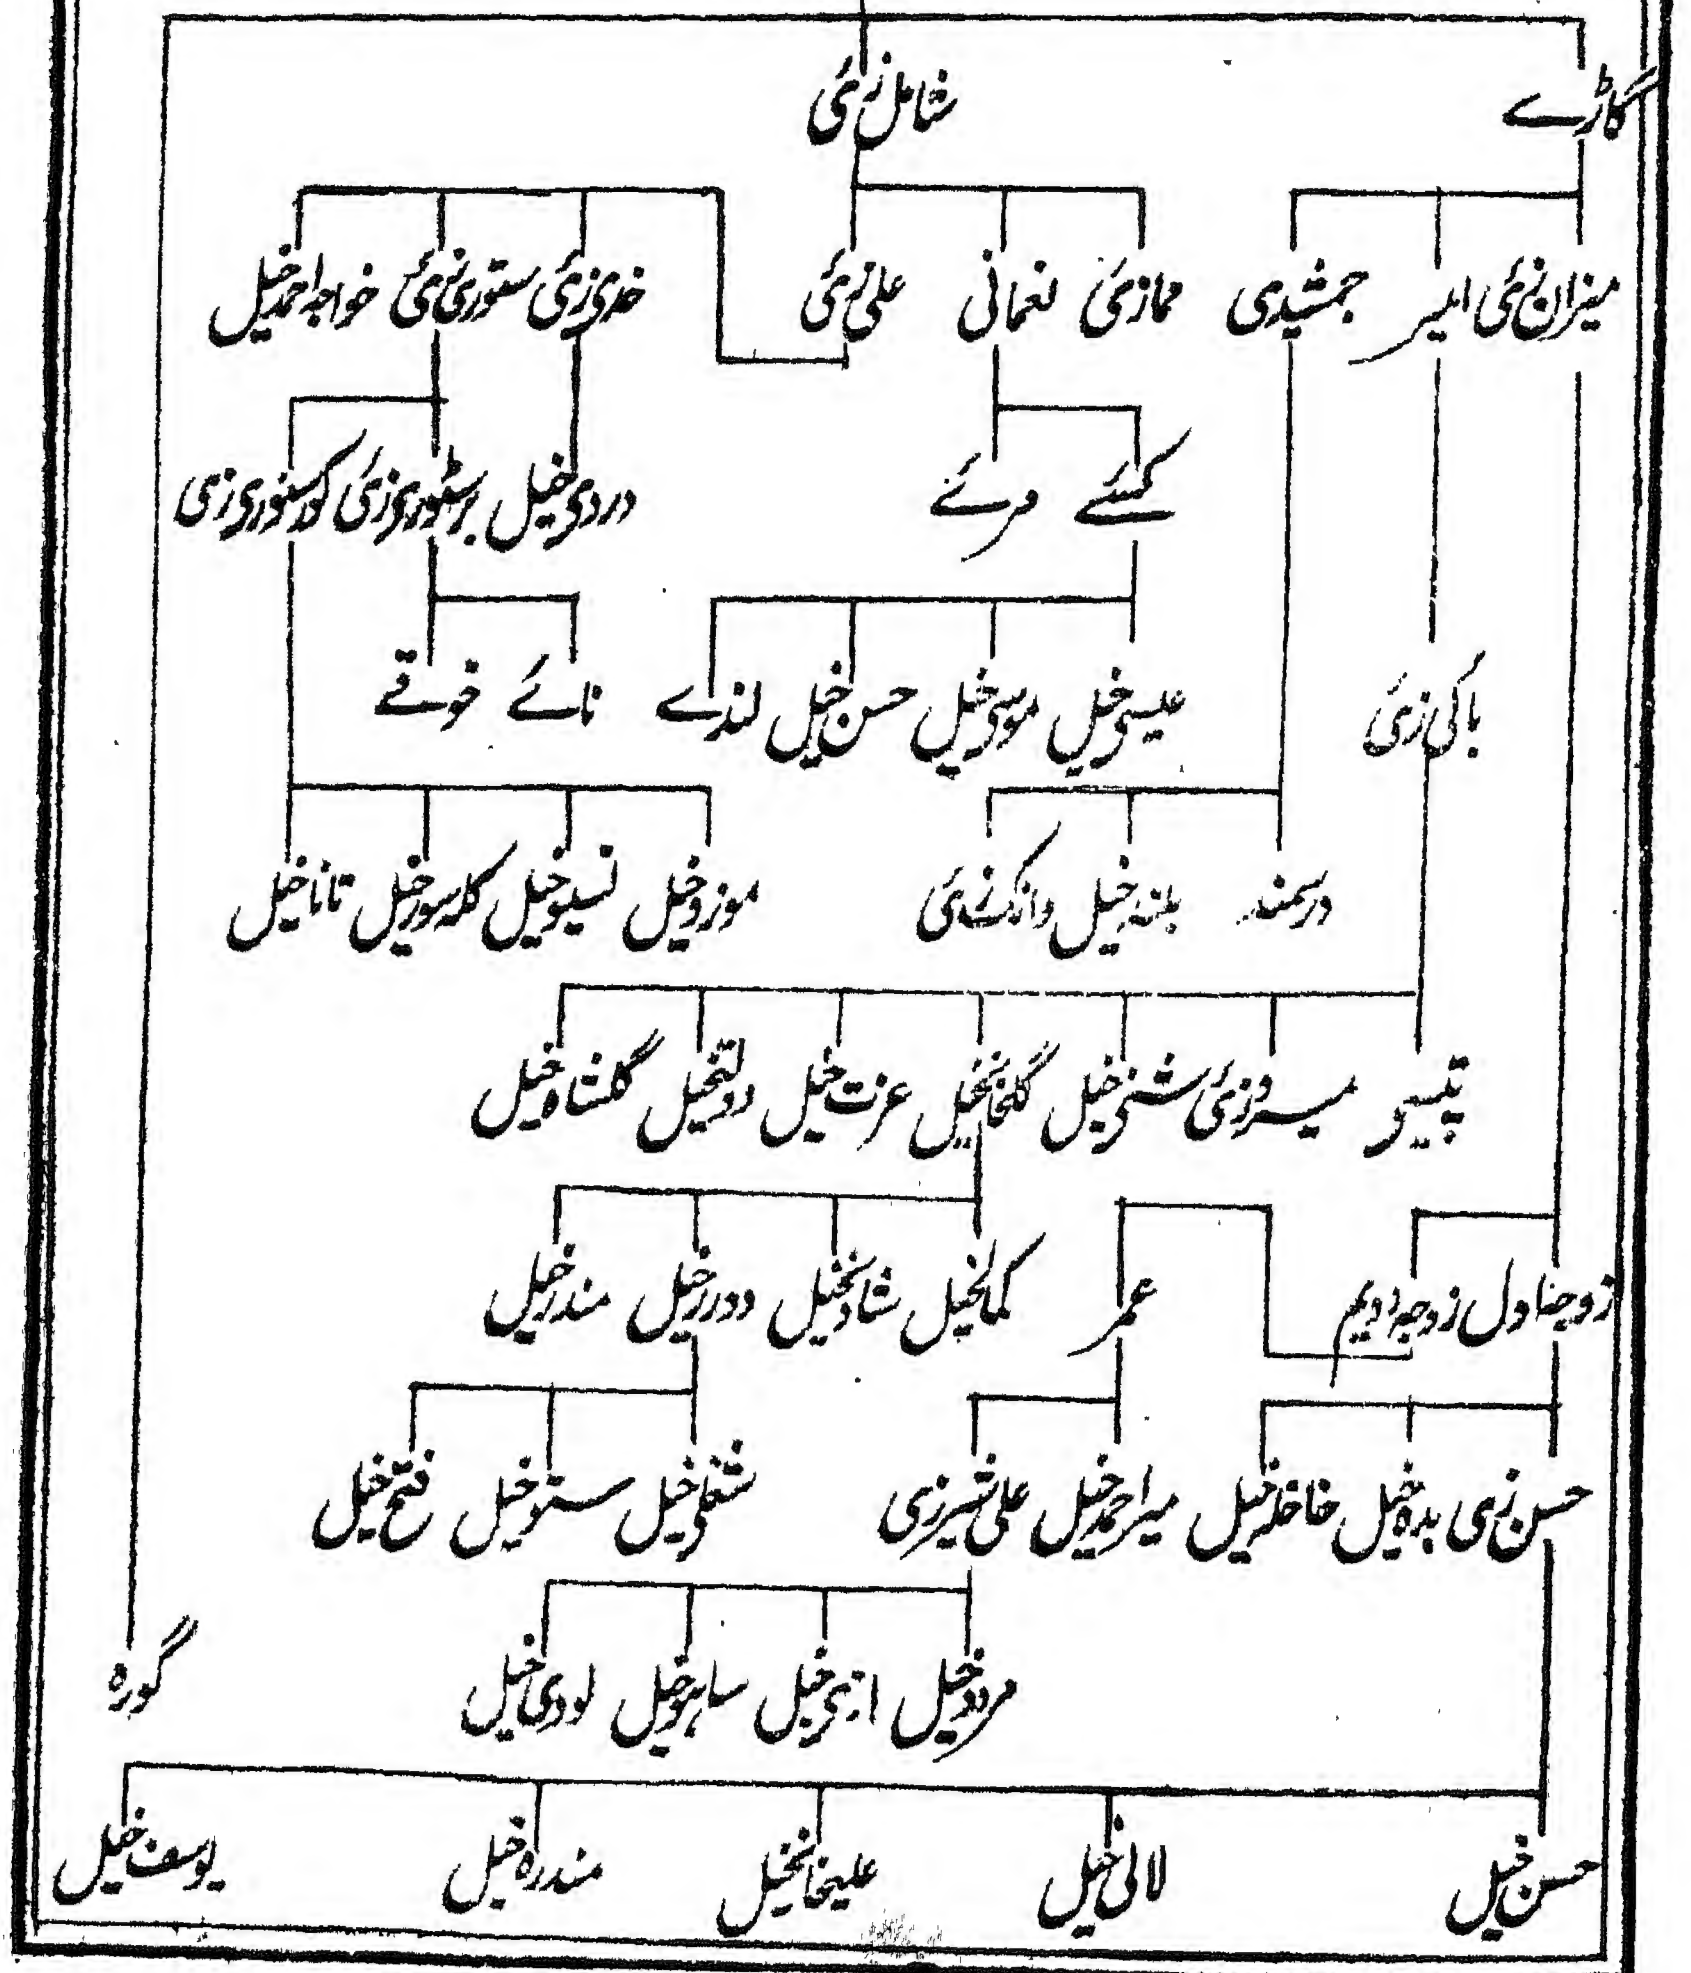 گاڑے شامل زئی
میزان زئی امیر جمشیدی حمازئی نعمانی علی زئی خدی زئی ستوری زئی خواجہ احمد خیل
کسئے مرئے دردی خیل برستوری زئی کورستوری زی
باکی زئی عیسی خیل موسی خیل حسن خیل لنڈے نائے خوقے
درسمند بلند خیل وانک زئی موزوخیل نسیلوخیل کلہ سورخیل تاناخیل
پتیسی میروزئی شنی خیل گلخانخیل عزت خیل دولتخیل گلشاہ خیل
زوجہ اول زوجہ دویم عمر کمالخیل شادیخیل دورزخیل مندرخیل
حسن زی بدہ خیل میراحمد خیل علی شیرزی شغلی خیل ستوخیل فتح خیل
مردوخیل سابوخیل لودی خیل گورہ
حسن خیل لالی خیل علیخانخیل مندرہ خیل یوسف خیل